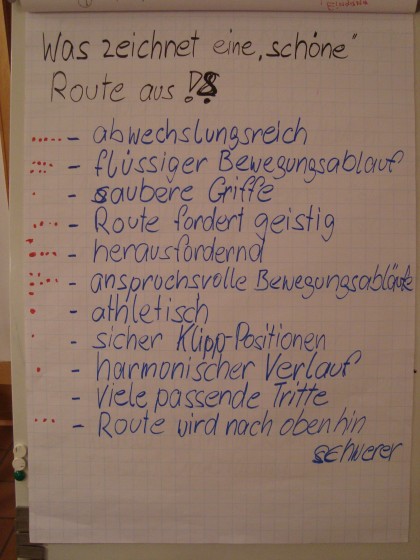 Was zeichnet eine „schöne"
Route aus ?
- abwechslungsreich
- flüssiger Bewegungsablauf
- saubere Griffe
- Route fordert geistig
- herausfordernd
- anspruchsvolle Bewegungsabläufe
- athletisch
- sicher Klipp-Positionen
- harmonischer Verlauf
- Viele passende Tritte
- Route wird nach oben hin
schwerer